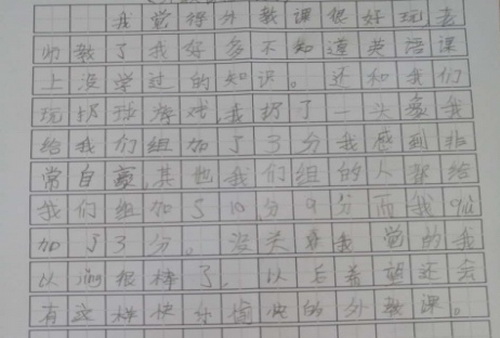 我觉得外教课很好玩老
师教了我好多不知道英语课
上没学过的知识。还和我们
玩扔球游戏,我扔了一头象我
给我们组加了3分我感到非
常自豪,其他我们组的人都给
我们组加了10分9分而我
加了3分。没关系我觉的我
以jing很棒了。以后希望还会
有这样快乐愉快的外教课。